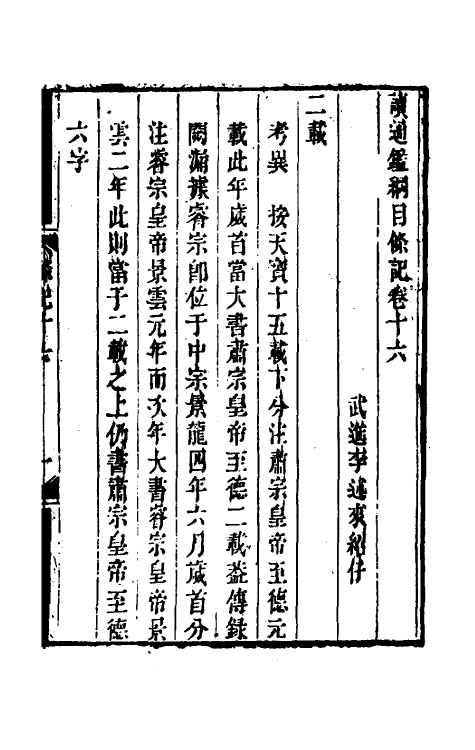 讀通鑑綱目條記卷十六
武進李述來紹仔
二載
考異 按天寶十五載下分注肅宗皇帝至德元
載此年歲首當大書肅宗皇帝至德二載蓋傳錄
闕漏據睿宗卽位于中宗景龍四年六月歲首分
注睿宗皇帝景雲元年而次年大書睿宗皇帝景
雲二年此則當于二載之上仍書肅宗皇帝至德
六字
條記十六
一